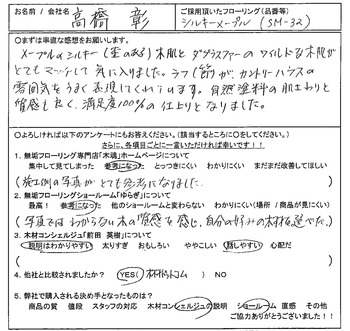 お名前／会社名 高橋 彰 ご採用頂いたフローリング(品番等) シルキーメープル (SM-32)
○まずは率直な感想をお願いします。
メープルのシルキー(歪のある)木肌と ダグラスファーの ワイルドな木肌が
とても マッチして 気に入りました。ラフ(節)が、カントリーハウスの
雰囲気をうまく表現してくれています。自然塗料の肌ざわりと
質感も良く、満足度100%の仕上りとなりました。
○よろしければ以下のアンケートにもお答えください。(該当するところに○をしてください。)
さらに、各項目ごとに一言いただければ幸いです！！
1. 無垢フローリング専門店「木魂」ホームページについて
集中して見てしまった 参考になった とっつきにくい わかりにくい まだまだ改善してほしい
(施工例の写真が とても参考になりました。)
2. 無垢フローリングショールーム「ゆらぎ」について
最高！ 参考になった 他のショールームと変わらない わかりにくい(場所／商品が見にくい)
(写真では わからない木の質感を感じ、自分の好みの木材を選べた。)
3. 木材コンシェルジュ「前田 英樹」について
説明はわかりやすい 太りすぎ おもしろい ややこしい 話しやすい 心配だ
4. 他社と比較されましたか？ YES( 木材ドットコム ) NO
5. 弊社で購入される決め手となったものは？
商品の質 値段 スタッフの対応 木材コンシェルジュの説明 ショールーム 直感 その他
ご協力ありがとうございました！